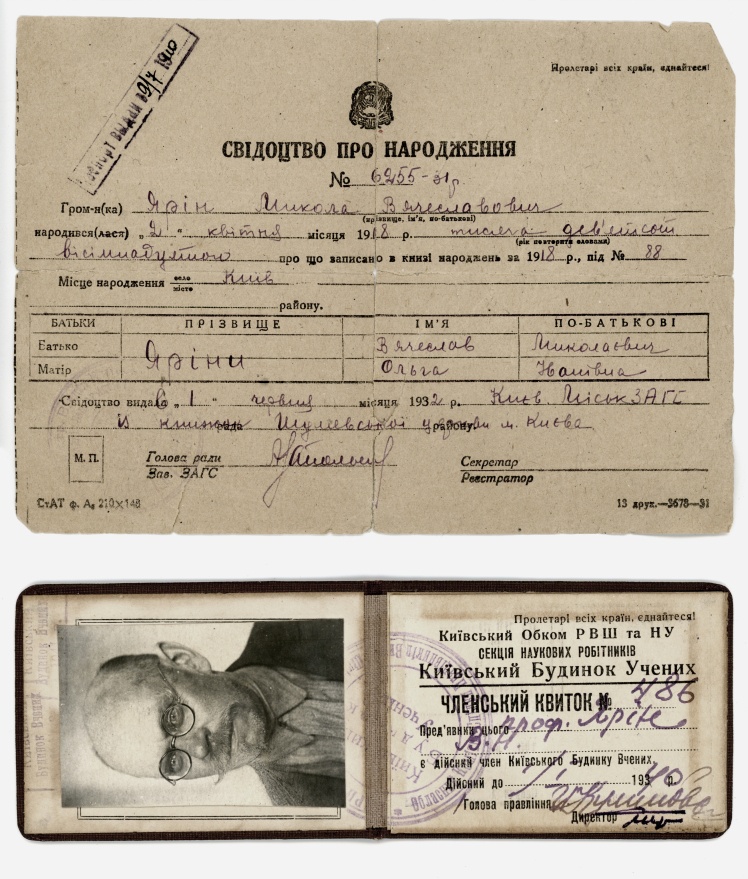 Пролетарі всіх країн, єднайтеся!
видан 19/7 1940
СВІДОЦТВО ПРО НАРОДЖЕННЯ
№ 6255-31р.
Гром-н(ка) Ярін Микола Вячеславович
(прізвище, ім'я, по-батькові)
народився(лася) „2" квітня місяця 1918 р. тисяча дев'ятсот
(рік повторити словами)
вісімнадцятого про що записано в книзі народжень за 1918 р., під № 88
Місце народження село місто Київ
району.
БАТЬКИ ПРІЗВИЩЕ ІМ'Я ПО-БАТЬКОВІ
Батько Яріни Вячеслав Миколаєвич
Матір Ольга Іванівна
Свідоцтво видав „1" червня місяця 1932 р. Київ. МіськЗАГС
із книжки Шулявської церкви м. Києва
району.
М. П.
Голова ради
Зав. ЗАГС
Секретар
Реєстратор
СтАТ ф. А₆ 210×148
13 друк.—3678—31
Пролетарі всіх країн, єднайтеся!
Київський Обком РВШ та НУ
СЕКЦІЯ НАУКОВИХ РОБІТНИКІВ
Київський Будинок Учених
ЧЛЕНСЬКИЙ КВИТОК № 486
Пред'явник цього проф. Ярін
В.М.
є дійсний член Київського Будинку Вчених
Дійсний до 1/I 1940 р.
Голова правління
Директор